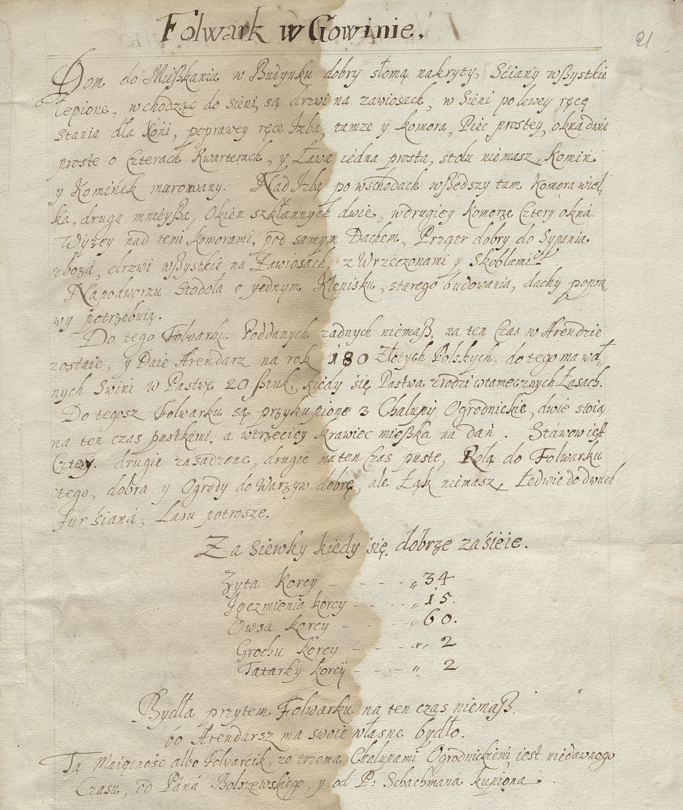 Folwark w Gowinie.
21
Dom do Mießkania w Budynku dobry słomą nakryty, Sciany wßystkie
lepione, wchodząc do sieni, są drzwi na zawiosach, w Sieni po lewey ręcę
Stania dla Koni, poprawey ręce Izba, tamże y komora, Piec prostey, okna dwie
proste o Czterach Kwarterach, y Ława iedna prosta, stołu niemasz. Komin
y Kominek murowany. Nad Izbą po wschodach wßedszy tam Komora wiel
ka, druga mnieyßa, Okien szklannych dwie, w drugiey Komorze Cztery okna.
Wyzey nad temi komorami, pod samym Dachem, Przętr dobry do Sypania
zboża, drzwi wßystkie na Zawiosach z Wrzeczonami y Skoblami
Napodworzu Stodoła o yednym Klepisku, starego budowania, dachy popra
wy potrzebuią.
Do tego Folwarku Poddanych żadnych niemaß, na ten Czas w Arendzie
zostaie, y Daie Arendarz na rok 180 Złotych Polskych, do tego ma wol
nych Swini w Pastwę 20 ßtuk, kiedy się Pastwa zrodzi w tamecznych Łasach.
Do tegosz Folwarku są przykupione 3 Chalupy Ogrodnickie, dwie stoią
na ten czas pustkami, a wtrzeciey krawiec mießka na dań. Stawow iest
Cztery. drugie zasadzene, drugie na ten Czas puste, Rola do Folwarku
tego, dobra y Ogrody do Warzyw dobre, ale Łąk niemasz, Ledwie do dwuch
fur siana, Lasu potrosze.
Zasiewky kiedy się dobrze zasieie.
Zyta Korcy - - - „ 34
Jęczmienia korcy - - - „ 15.
Owsa korcy - - - „ 60.
Grochu korcy - - - „ 2
Tatarky korcy - - - „ 2
Bydła przytem Folwarku na ten czas niemaß.
bo Arendarsz ma swoie własne bydło.
Ta Maiętność albo Folwarcik, ze trzema Chalupami Ogrodnickiemi iest niedawnego
Czasu, od Páná Bolszewskiego, y od P: Schachmana kupiona.